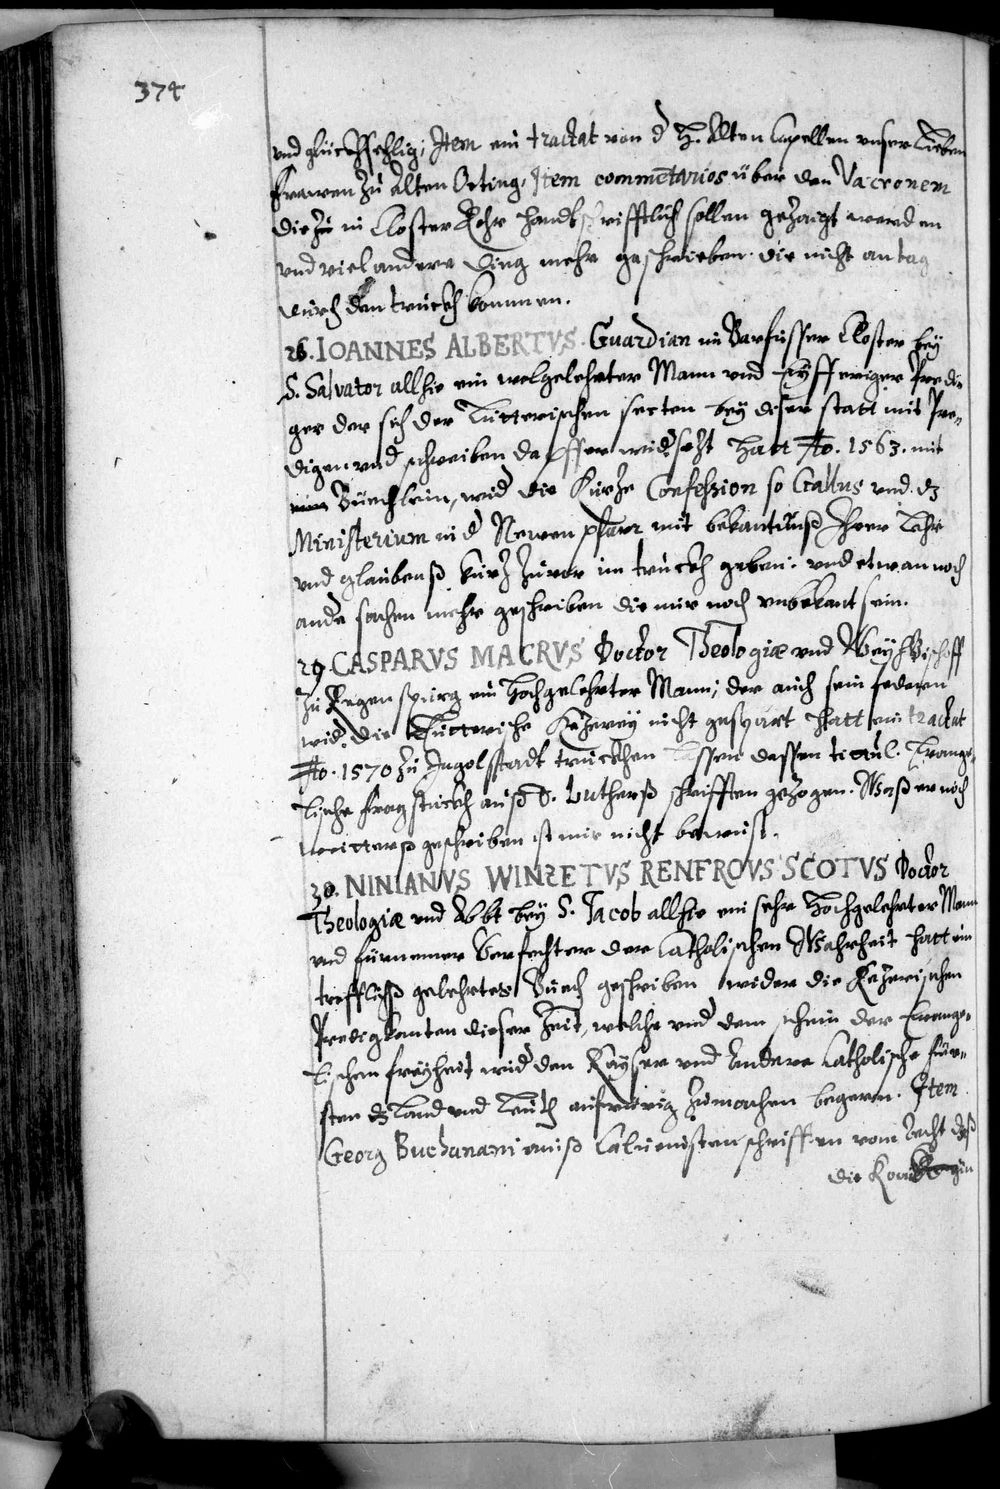 374
vnd glückhsehlig; Item ein tractat von d H. Alten Capellen vnser Lieben
Frawen zu Alten Oeting, Item commētarios über den Vacronem
die zu in Closter Rohr handtschrifftlich sollen gezaigt werden
vnd viel andere ding mehr geschrieben die nicht an tag
durch den truckh kommen.
28. IOANNES ALBERTVS. Guardian im Barfüsser Closter bey
S. Salvator allhie ein wolgelehrter Mann vnd Eyfferiger Predi¬
ger der sich der Lutterischen secten bey diser statt mit Pre¬
digen vnd schreiben dapffer wid sezt hatt Ao. 1563. mit
Büechlein, wid die kurze Confession so Gallus vnd dz
Ministerium in d Newen pfarr mit bekantnuß Jhrer Lehr
vnd glaubenß kurz zuvor im truckh geben: vnd etwan noch
ande sachen mehr geschriben die mir noch vnbekant sein.
29. CASPARVS MACRVS Doctor Theologiæ vnd WeyhBischoff
zu Regenspurg ein Hochgelehrter Mann; der auch sein federn
wid. die Lutterische Kezerey nicht gespart hatt ein tractat
Ao. 1570 zu Ingolstadt truckhen lassen dessen titul. Evange¬
lische fragstuckh auß D. Lutherß schrifften gezogen. Waß er noch
weitterß geschriben ist mir nicht bewust.
30. NINIANVS WINZETVS RENFROVS SCOTVS Doctor
Theologiæ vnd Abbt bey S. Jacob allhie ein sehr Hochgelehrter Mann
vnd fürnemer Verfechter der Catholischen Wahrheit hatt ein
trefflichß gelehrtes Buech geschriben wider die Kezerischen
Predigkanten dieser Zeit, welche vnd dem schein der Evange¬
lischen freyheit wid den Kayser vnd andere Catholische für¬
sten dz Land vnd Leuth aufrürig zumachen begeren. Item
Georg Buchanani einiß Caluinisten schrifften vom Recht daß
die